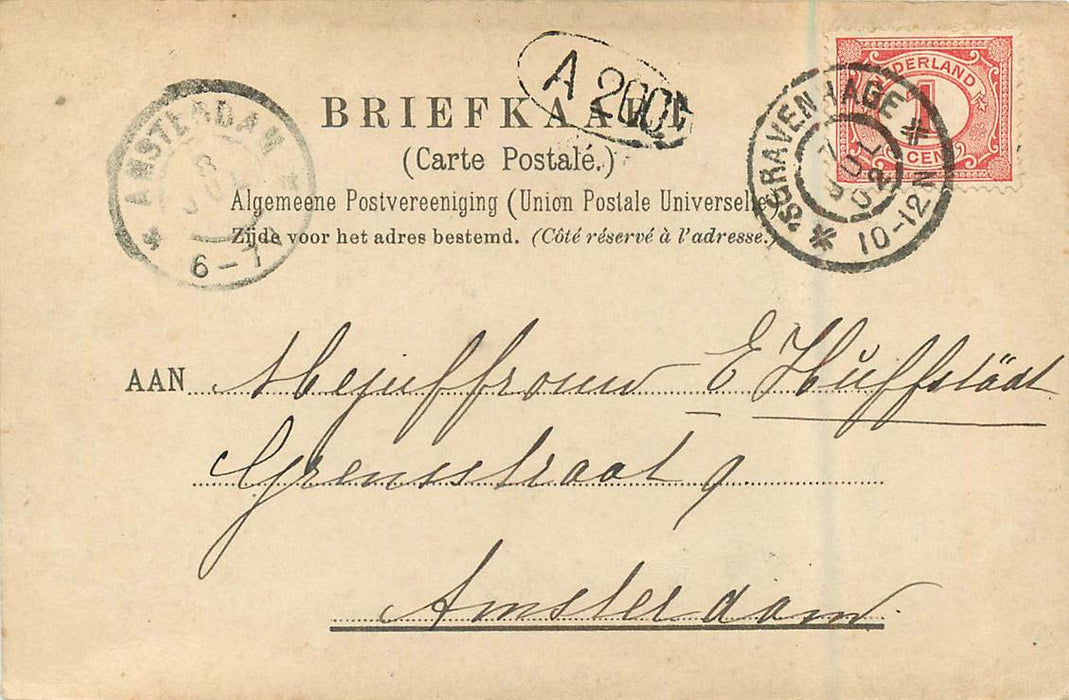 A 200
BRIEFKAART
(Carte Postale.)
Algemeene Postvereeniging (Union Postale Universelle)
Zijde voor het adres bestemd. (Côté réservé à l'adresse.)
AMSTERDAM
8
6-7
'SGRAVENHAGE
7 JUL
902
10-12N
NEDERLAND
1
CENT
AAN Mejuffrouw E Hüffstädt
Grensstraat 9
Amsterdam.